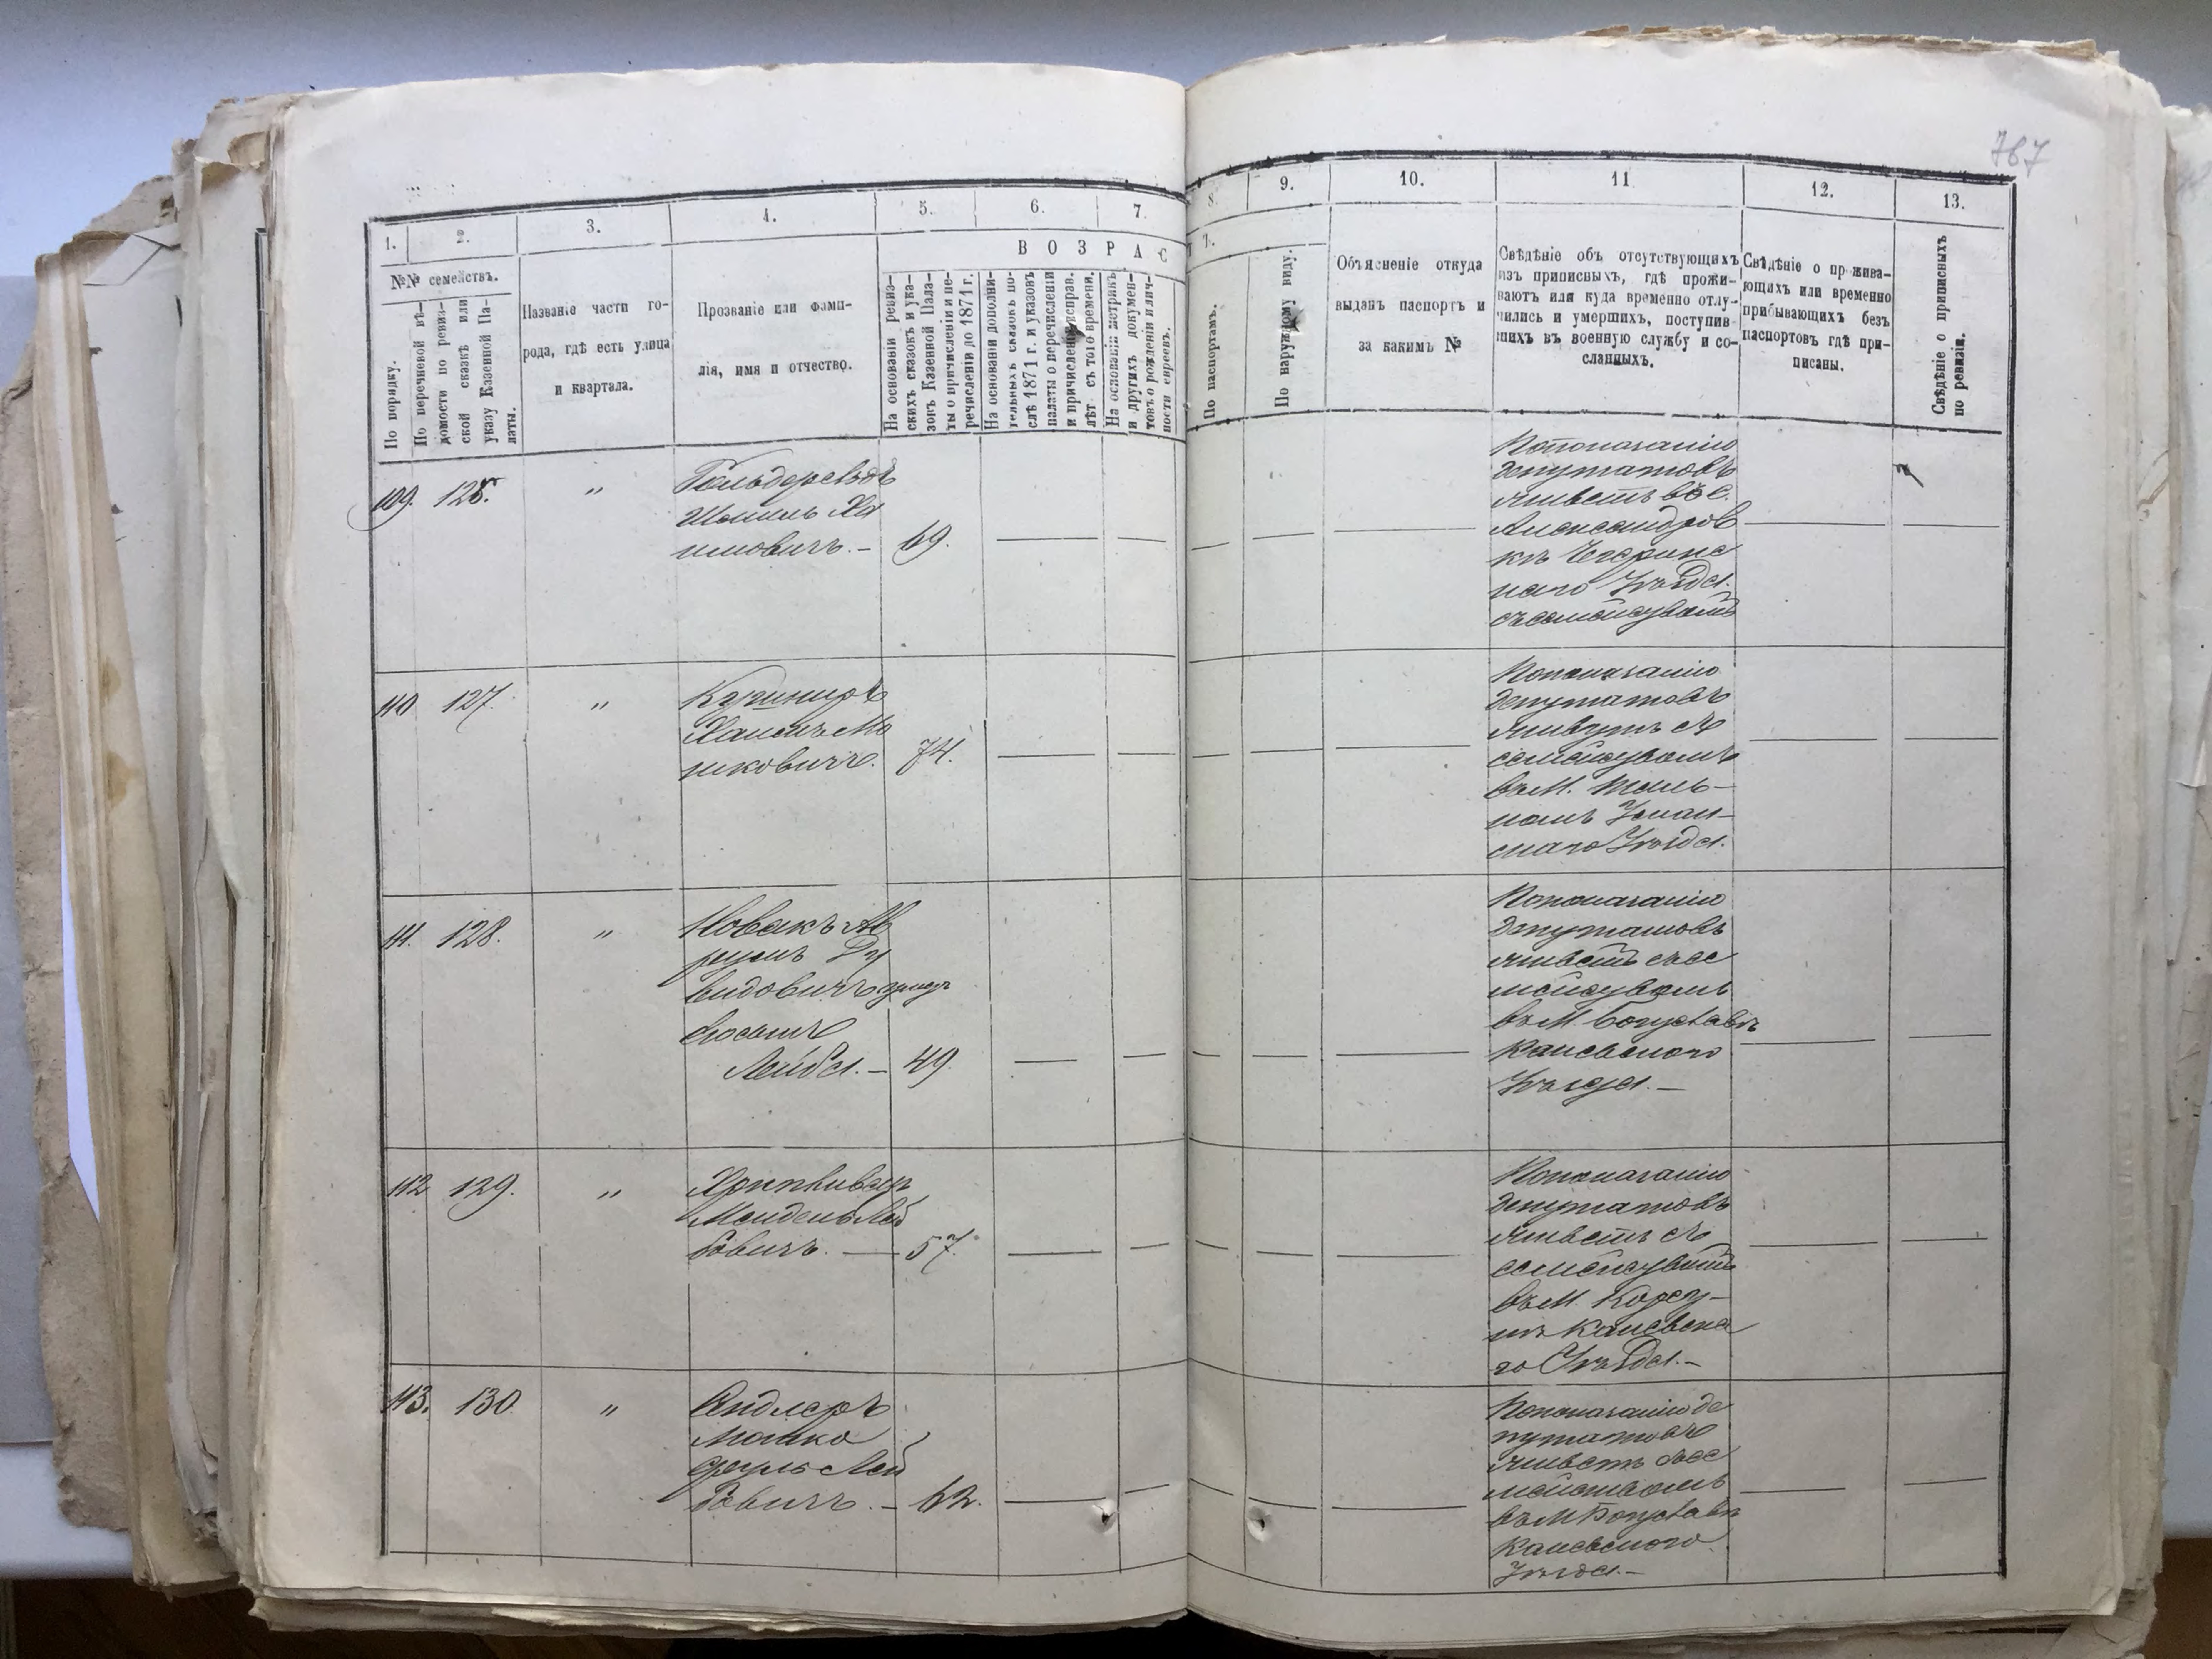 767
1.
2.
3.
4.
5.
6.
7.
8.
9.
10.
11
12.
13.
№№ семействъ.
В О З Р А С Т.
По порядку.
По перечневой вѣ-
домости по ревиз-
ской сказкѣ или
указу Казенной Па-
латы.
Названіе части го-
рода, гдѣ есть улица
и квартала.
Прозваніе или фами-
лія, имя и отчество.
На основаніи ревиз-
скихъ сказокъ и ука-
зовъ Казенной Пала-
ты о причисленіи и пе-
речисленіи до 1871 г.
На основаніи дополни-
тельныхъ сказокъ по-
слѣ 1871 г. и указовъ
палаты о перечисленіи
и причисленіи
лѣт съ того времени.
На основаніи метрикъ
и другихъ докумен-
товъ о рожденіи и лич-
ности евреевъ.
По паспортамъ.
По наружному виду.
Объясненіе откуда
выданъ паспортъ и
за какимъ №
Свѣдѣніе объ отсутствующихъ
изъ приписныхъ, гдѣ прожи-
ваютъ или куда временно отлу-
чились и умершихъ, поступив-
шихъ въ военную службу и со-
сланныхъ.
Свѣдѣніе о прожива-
ющихъ или временно
прибывающихъ безъ
паспортовъ гдѣ при-
писаны.
Свѣдѣніе о приписныхъ
по ревизіи.
109. 125. "
Шмиль Ха
имовичъ. — 69.
По показанію
депутатовъ
живетъ въ с.
Александров
кѣ Чегринс
каго Уѣзда.
съ семействомъ
110 127. "
Кушниръ
Хаимъ Мо
шковичъ. 74.
По показанію
депутатовъ
живутъ съ
семействомъ
въ М. Таль-
номъ Уман-
скаго Уѣзда.
111. 128. "
Новакъ Аб
румъ Ду
видовичъ
Іосьынъ
Лейба. — 49.
По показанію
депутатовъ
живетъ съ се
мействомъ
въ М. Богуславѣ
Каневского
Уѣзда. —
112 129. "
Мендель Лей
бовичъ. — 57.
По показанію
депутатовъ
живетъ съ
семействомъ
въ М. Корсу-
нѣ Каневска
го Уѣзда. —
113. 130 "
Андлеръ
Мошко
Сруль Лей
бовичъ. — 62.
По показанію де
путатовъ
живетъ съ се
мействомъ
въ М Богуславѣ
Каневского
Уѣзда. —